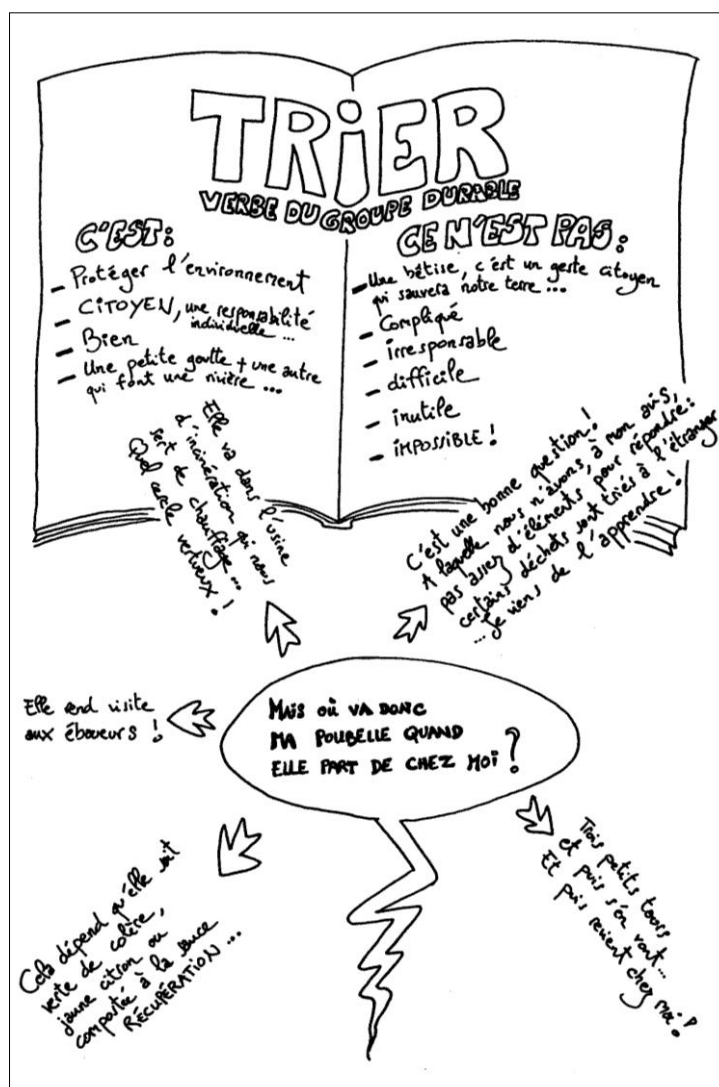 TRiER
VERBE DU GROUPE DURABLE
C'EST:
- Protéger l'environnement
- CiTOYEN, une responsabilité
individuelle ...
- Bien
- Une petite goutte + une autre
qui font une rivière ...
CE N'EST PAS:
- Une bêtise, c'est un geste citoyen
qui sauvera notre terre ...
- Compliqué
- irresponsable
- difficile
- inutile
- iMPOSSIBLE !
Elle va dans l'usine
d'incinération qui nous
sert de chauffage ...
Quel cercle
vertueux !
C'est une bonne question!
A laquelle nous n'avons, à mon avis,
pas assez d'éléments pour répondre:
certains déchets sont triés à l'étranger
... Je viens de l'apprendre !
Elle rend visite
aux éboueurs !
MAIS OÙ VA DONC
MA POUBELLE QUAND
ELLE PART DE CHEZ MOI ?
Cela dépend qu'elle soit
verte de colère,
jaune citron ou
compostée à la sauce
RÉCUPÉRATION ...
Trois petits tours
et puis s'en vont...
Et puis revient chez moi !